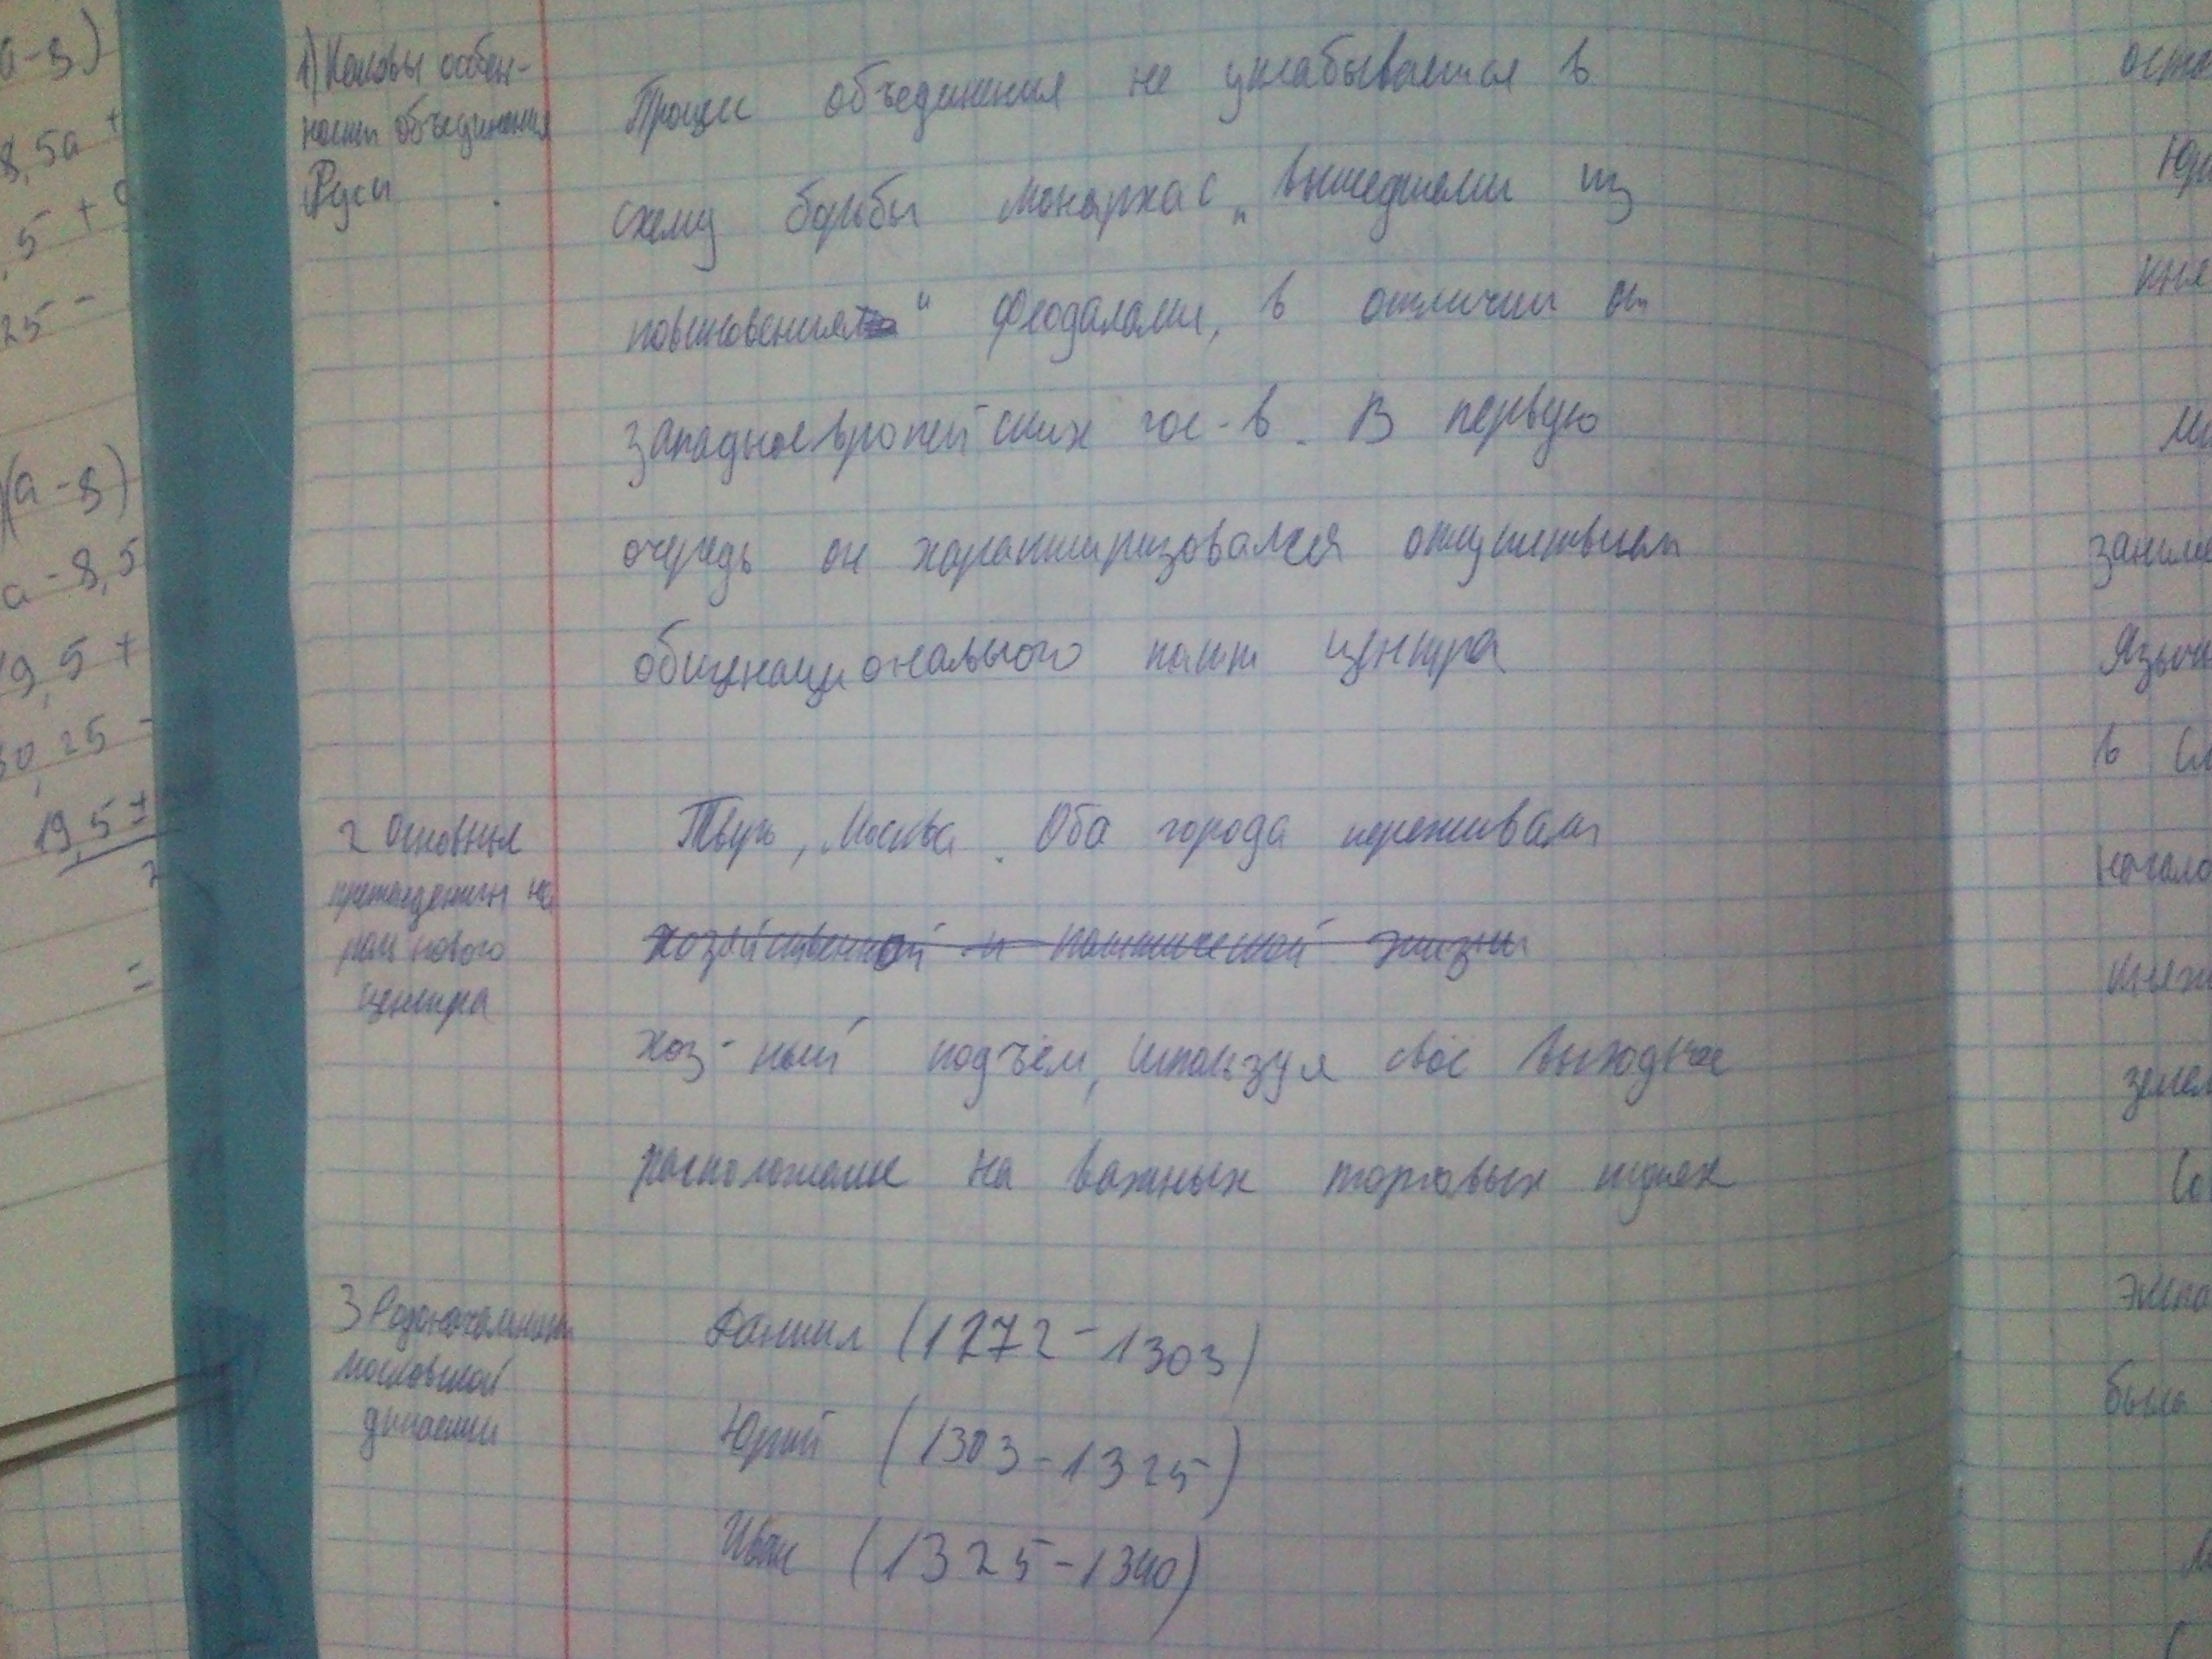 а-8)
8,5а +
,5 +9
25 -
(а-8)
а-8,5
19,5+
30,25-
19,5±
2
=
1) Каковы особен-
ности объединения
Руси
Процесс объединения не укладывается в
схему борьбы монарха с „вышедшими из
повиновения“ феодалами, в отличии от
западноевропейских гос-в. В первую
очередь он характеризовался отсутствием
общенационального полит центра
2 Основные
претенденты на
роль нового
центра
Тверь, Москва. Оба города переживали
хозяйственной и политической жизни
хоз-ный подъём, используя своё выходное
расположение на важных торговых путях
3 Родоначальники
московской
династии
Даниил (1272-1303)
Юрий (1303-1325)
Иван (1325-1340)
оста
Юри
кня
заним
Языч
в
начало
княж
земел
Со
была